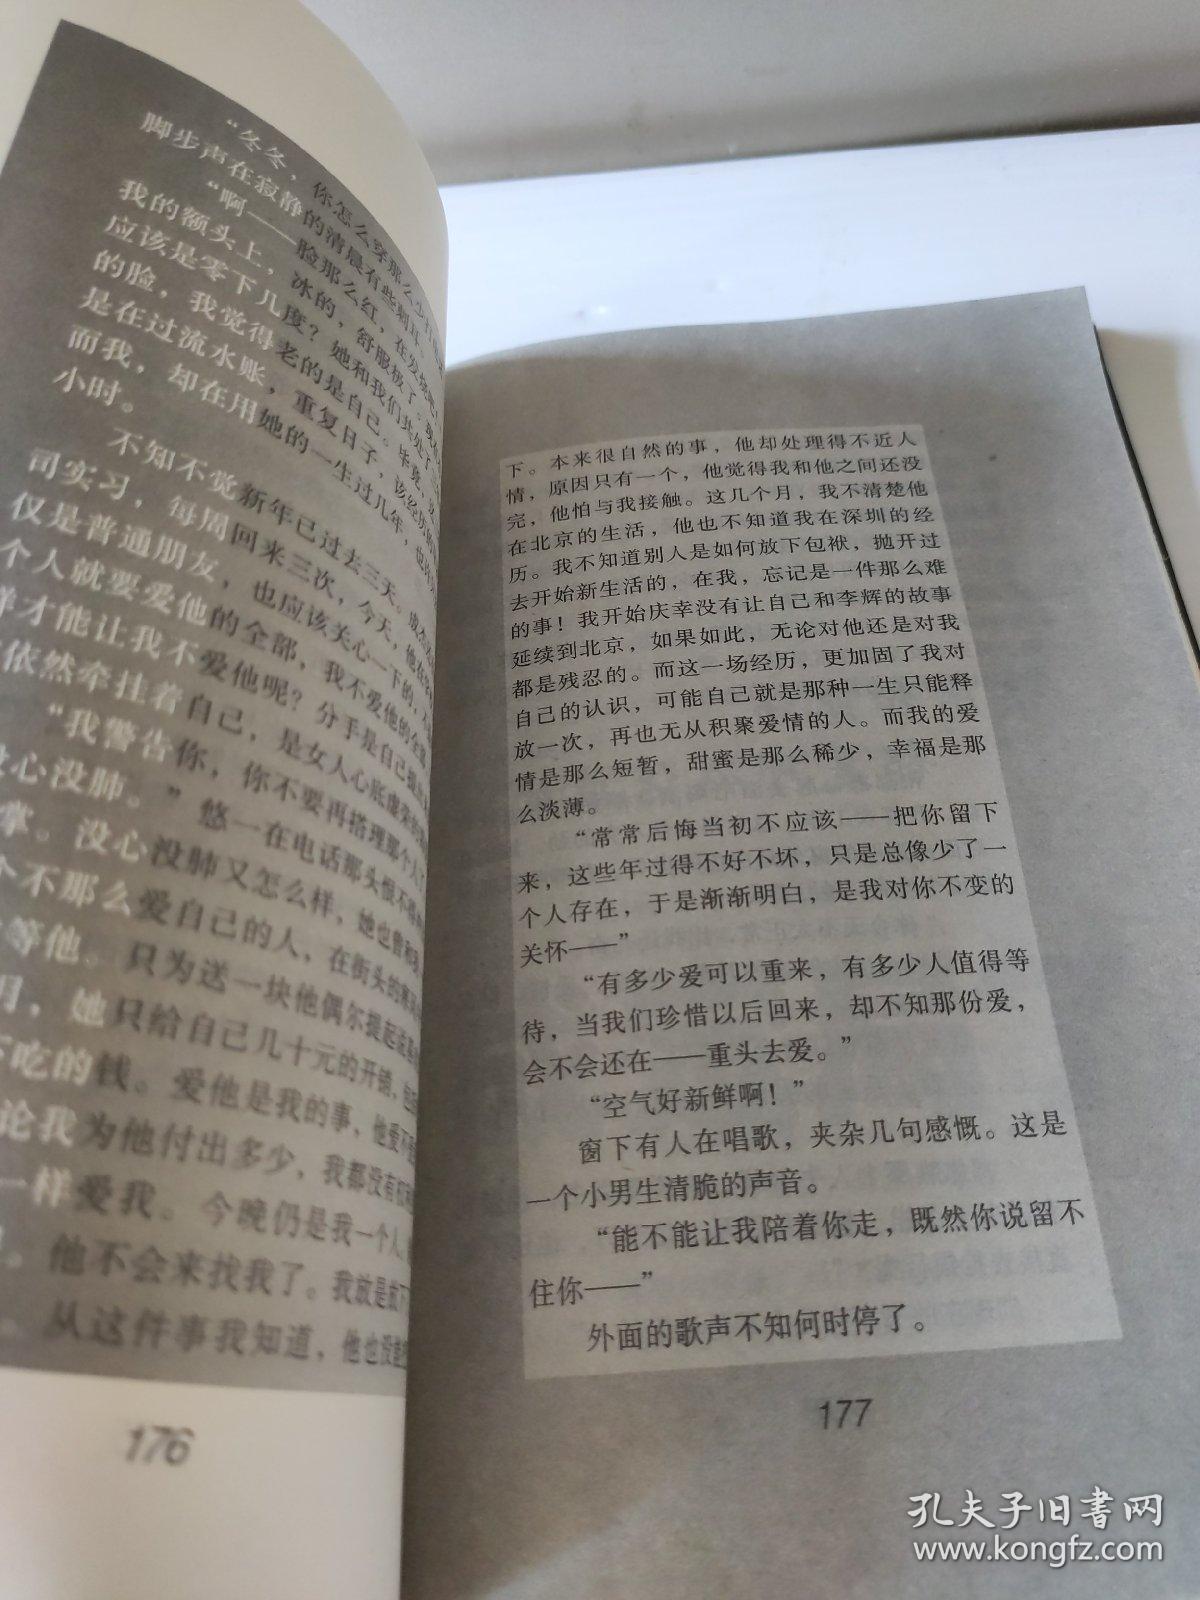 “冬冬，你怎么穿那么少
脚步声在寂静的清晨有些刺耳。
“啊——脸那么红，在发烧吧！
我的额头上，冰的，舒服极了。
应该是零下几度？她和我们共处了
的脸，我觉得老的是自己。毕竟，
是在过流水账，重复日子，该经历的
而我，却在用她的一生过几年，也许
小时。
不知不觉新年已过去三天。
司实习，每周回来三次，今天，他
仅是普通朋友，也应该关心一下的，
个人就要爱他的全部，我不爱他的全
样才能让我不爱他呢？分手是自己提出
依然牵挂着自己，是女人心底虚荣
“我警告你，你不要再搭理那个人了
心没肺。”悠一在电话那头恨不得
掌。没心没肺又怎么样，她也曾和
个不那么爱自己的人，在街头的寒风
等他。只为送一块他偶尔提起
月，她只给自己几十元的开销，
吃的钱。爱他是我的事，他爱不
论我为他付出多少，我都没有权
一样爱我。今晚仍是我一个人，
他不会来找我了。我放是放下
从这件事我知道，他也没
176
下。本来很自然的事，他却处理得不近人
情，原因只有一个，他觉得我和他之间还没
完，他怕与我接触。这几个月，我不清楚他
在北京的生活，他也不知道我在深圳的经
历。我不知道别人是如何放下包袱，抛开过
去开始新生活的，在我，忘记是一件那么难
的事！我开始庆幸没有让自己和李辉的故事
延续到北京，如果如此，无论对他还是对我
都是残忍的。而这一场经历，更加固了我对
自己的认识，可能自己就是那种一生只能释
放一次，再也无从积聚爱情的人。而我的爱
情是那么短暂，甜蜜是那么稀少，幸福是那
么淡薄。
“常常后悔当初不应该——把你留下
来，这些年过得不好不坏，只是总像少了一
个人存在，于是渐渐明白，是我对你不变的
关怀——”
“有多少爱可以重来，有多少人值得等
待，当我们珍惜以后回来，却不知那份爱，
会不会还在——重头去爱。”
“空气好新鲜啊！”
窗下有人在唱歌，夹杂几句感慨。这是
一个小男生清脆的声音。
“能不能让我陪着你走，既然你说留不
住你——”
外面的歌声不知何时停了。
177
孔夫子旧书网
www.kongfz.com